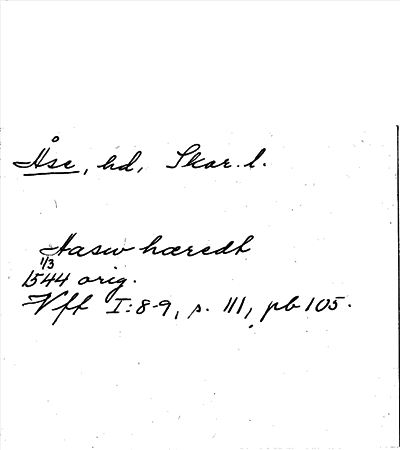 Åse, hd, Skar. l.
Aasw hæredt
1/3
1544 orig.
Vff I:8-9, s. 111, pb 105.